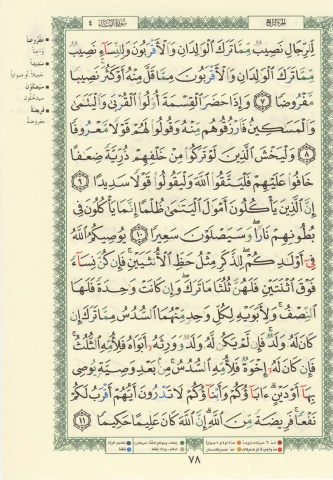 الجزء الرابع
سورة النساء
٤
لِّلرِّجَالِ نَصِيبٌ مِّمَّا تَرَكَ الْوَالِدَانِ وَالْأَقْرَبُونَ وَلِلنِّسَاءِ نَصِيبٌ
مِّمَّا تَرَكَ الْوَالِدَانِ وَالْأَقْرَبُونَ مِمَّا قَلَّ مِنْهُ أَوْ كَثُرَ نَصِيبًا
مَّفْرُوضًا ٧ وَإِذَا حَضَرَ الْقِسْمَةَ أُولُوا الْقُرْبَىٰ وَالْيَتَامَىٰ
وَالْمَسَاكِينُ فَارْزُقُوهُم مِّنْهُ وَقُولُوا لَهُمْ قَوْلًا مَّعْرُوفًا
٨ وَلْيَخْشَ الَّذِينَ لَوْ تَرَكُوا مِنْ خَلْفِهِمْ ذُرِّيَّةً ضِعَافًا
خَافُوا عَلَيْهِمْ فَلْيَتَّقُوا اللَّهَ وَلْيَقُولُوا قَوْلًا سَدِيدًا ٩
إِنَّ الَّذِينَ يَأْكُلُونَ أَمْوَالَ الْيَتَامَىٰ ظُلْمًا إِنَّمَا يَأْكُلُونَ فِي
بُطُونِهِمْ نَارًا وَسَيَصْلَوْنَ سَعِيرًا ١٠ يُوصِيكُمُ اللَّهُ
فِي أَوْلَادِكُمْ لِلذَّكَرِ مِثْلُ حَظِّ الْأُنثَيَيْنِ فَإِن كُنَّ نِسَاءً
فَوْقَ اثْنَتَيْنِ فَلَهُنَّ ثُلُثَا مَا تَرَكَ وَإِن كَانَتْ وَاحِدَةً فَلَهَا
النِّصْفُ وَلِأَبَوَيْهِ لِكُلِّ وَاحِدٍ مِّنْهُمَا السُّدُسُ مِمَّا تَرَكَ إِن
كَانَ لَهُ وَلَدٌ فَإِن لَّمْ يَكُن لَّهُ وَلَدٌ وَوَرِثَهُ أَبَوَاهُ فَلِأُمِّهِ الثُّلُثُ
فَإِن كَانَ لَهُ إِخْوَةٌ فَلِأُمِّهِ السُّدُسُ مِن بَعْدِ وَصِيَّةٍ يُوصِي
بِهَا أَوْ دَيْنٍ آبَاؤُكُمْ وَأَبْنَاؤُكُمْ لَا تَدْرُونَ أَيُّهُمْ أَقْرَبُ لَكُمْ
نَفْعًا فَرِيضَةً مِّنَ اللَّهِ إِنَّ اللَّهَ كَانَ عَلِيمًا حَكِيمًا ١١
مفروضا
واجبا
سديدا
جميلا أو صوابا
سيصلون
سيدخلون
فريضة
مفروضة
٧٨